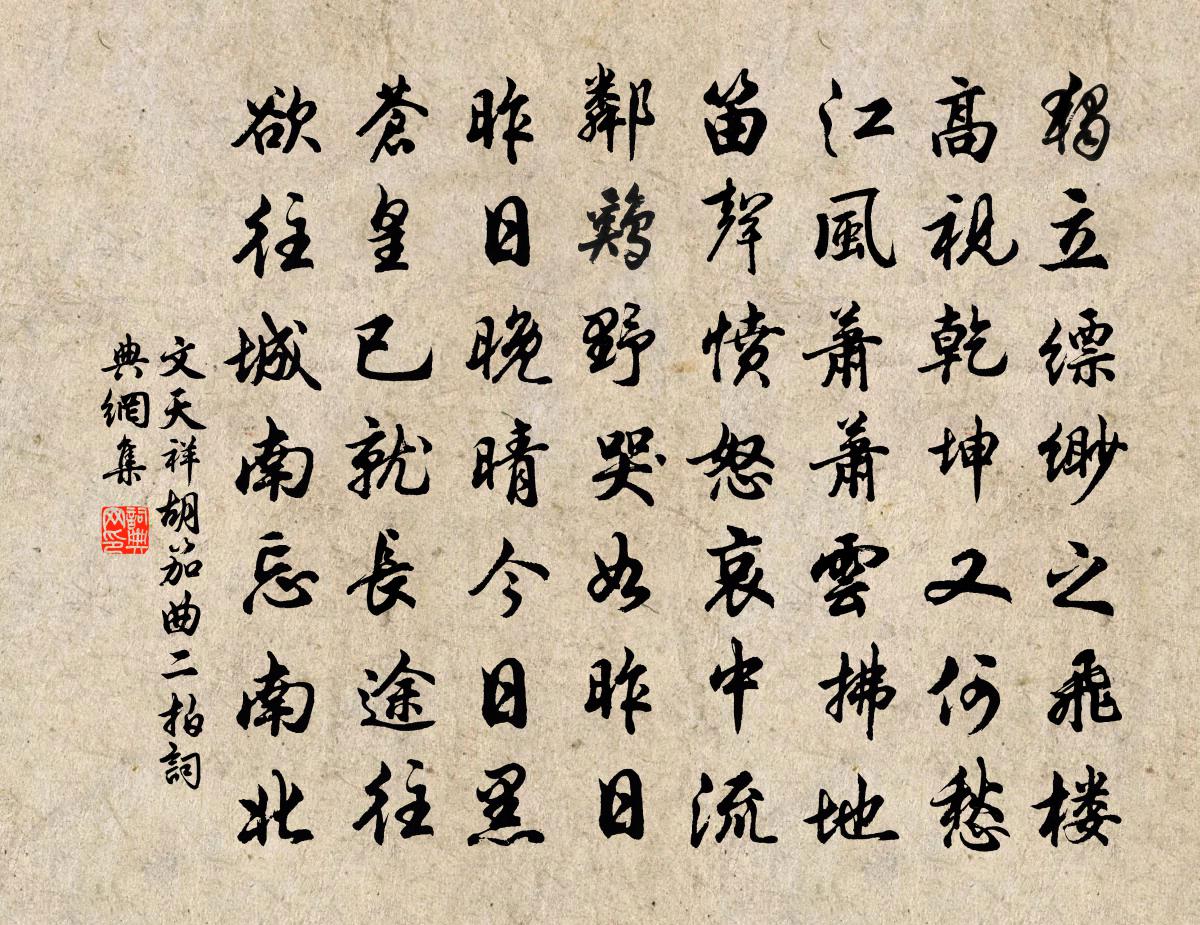 獨立縹緲之飛楼
高視乾坤又何愁
江風蕭蕭雲拂地
笛聲憤怒哀中流
鄰鷄野哭如昨日
昨日晚晴今日黑
蒼皇已就長途往
欲往城南忘南北
文天祥胡笳曲二拍詞
典網集
詞典网印